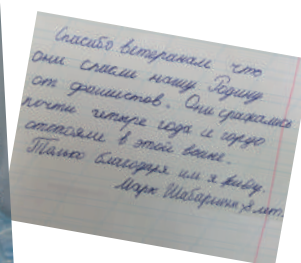 Спасибо ветеранам что
они спасли нашу Родину
от фашистов. Они сражались
почти четыре года и гордо
стояли в этой войне.
Только благодаря им я живу.
Марк 8 лет.